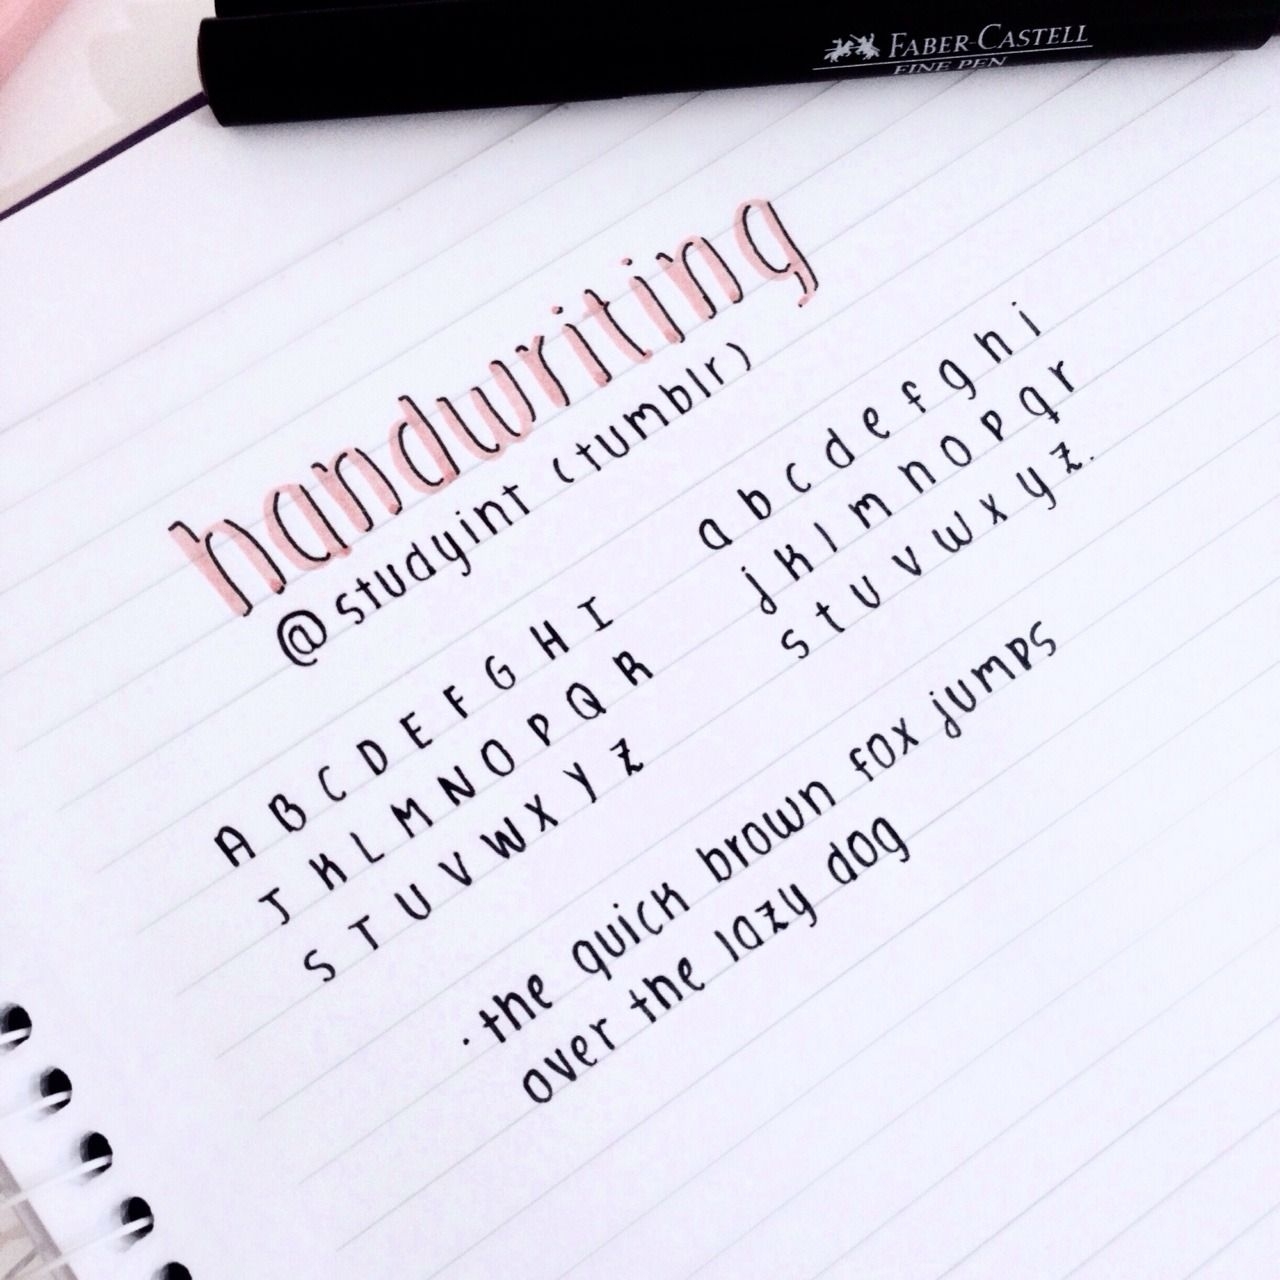 FABER-CASTELL
FINE PEN
handwriting
@studyint (tumblr)
A B C D E F G H I
J K L M N O P Q R
S T U V W X Y Z
a b c d e f g h i
j k l m n o p q r
s t u v w x y z.
· the quick brown fox jumps
over the lazy dog